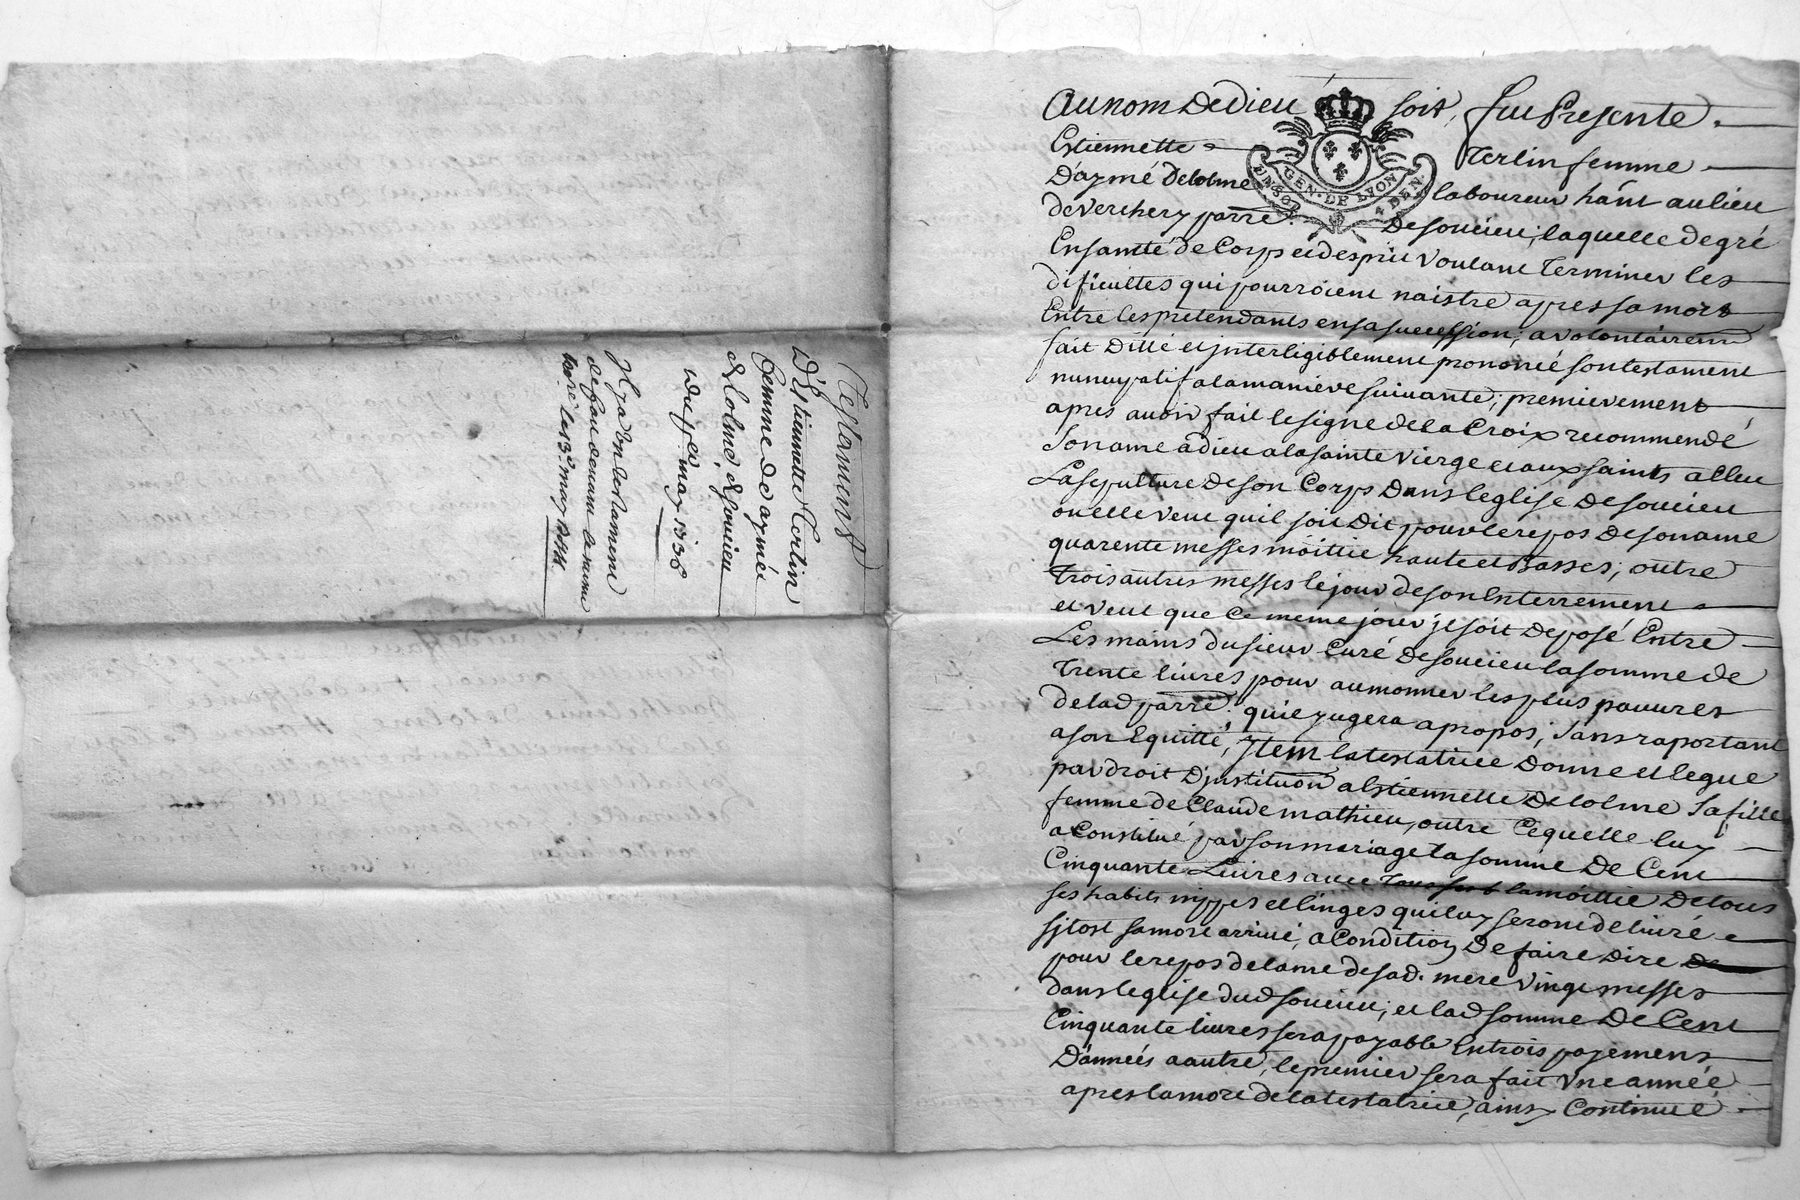 Testament
D'Estiennette Terlin
femme de aymée
delolme, de soucieu
du 13e may 1736
Il y a un testament
depau devant le meme
le 13e may 1734
Au nom De Dieu soit, fut Presente
Estiennette Terlin femme
D'aymé Delolme laboureur hânt au lieu
de Verchery parre. De soucieu, laquelle de gré
En santté de Corps et d'esprit voulant Terminer les
dificultes qui pourroient naistre apres sa mort
Entre les pretendants en sa succession; a volontairemt
fait Ditté et jnterligiblement prononcé son testament
nuncupatif a la maniere suivante; premierement
apres avoir fait le signe de la Croix recommendé
Son ame a dieu a la sainte vierge et aux saints a Eleu
La sepulture de son Corps Dans l'eglise De soucieu
ou elle veut qu'il soit Dit pour le repos de son ame
quarente messes moittié haute et Basses; outre
Trois autres messes le jour de son Enterrement
et veut que Ce meme jour jl soit Deposé Entre
Les mains du sieur Curé De soucieu la somme de
Trente livres pour aumonner les plus pauvres
de lad parre. qu'il jugera a propos, s'ans raportant
a son Equitté, Jtem la testatrice Donne et legue
par droit D'jnstitution a Estiennette Delolme sa fille
femme de Claude mathieu, outre Ce quelle luy
a Constitué par son mariage la somme De Cent
Cinquante Livres avec la moittié De tous
ses habits nippes et linges qui luy seront delivré
sjtost sa mort arrivé, a Condition De faire Dire
pour le repos de lame de sad. mere vingt messes
dans leglise dud soucieu; et lad somme De Cent
Cinquante livres sera payable En trois payemens
D'anneés a autre, le premier sera fait Vne anneé
apres la mort de la testatrice, ainsy Continué
GEN. DE LYON